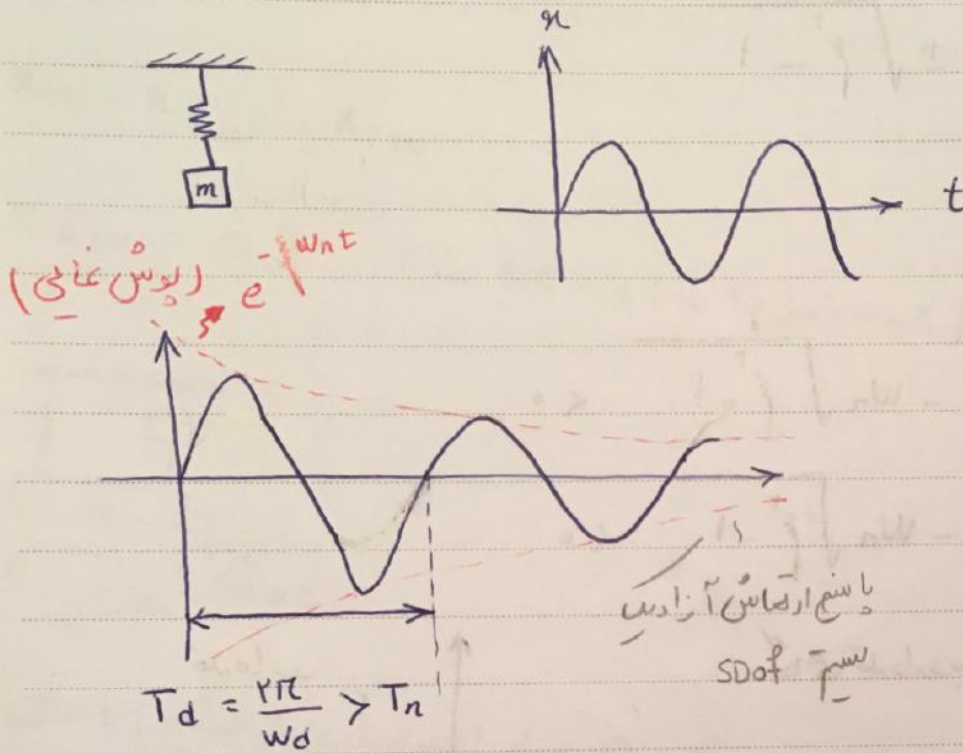 x
m
t
(پوش نمایی) e^-ξωnt
پاسخ ارتعاش آزاد یک
سیستم SDof
Td = ۲π/ωd > Tn